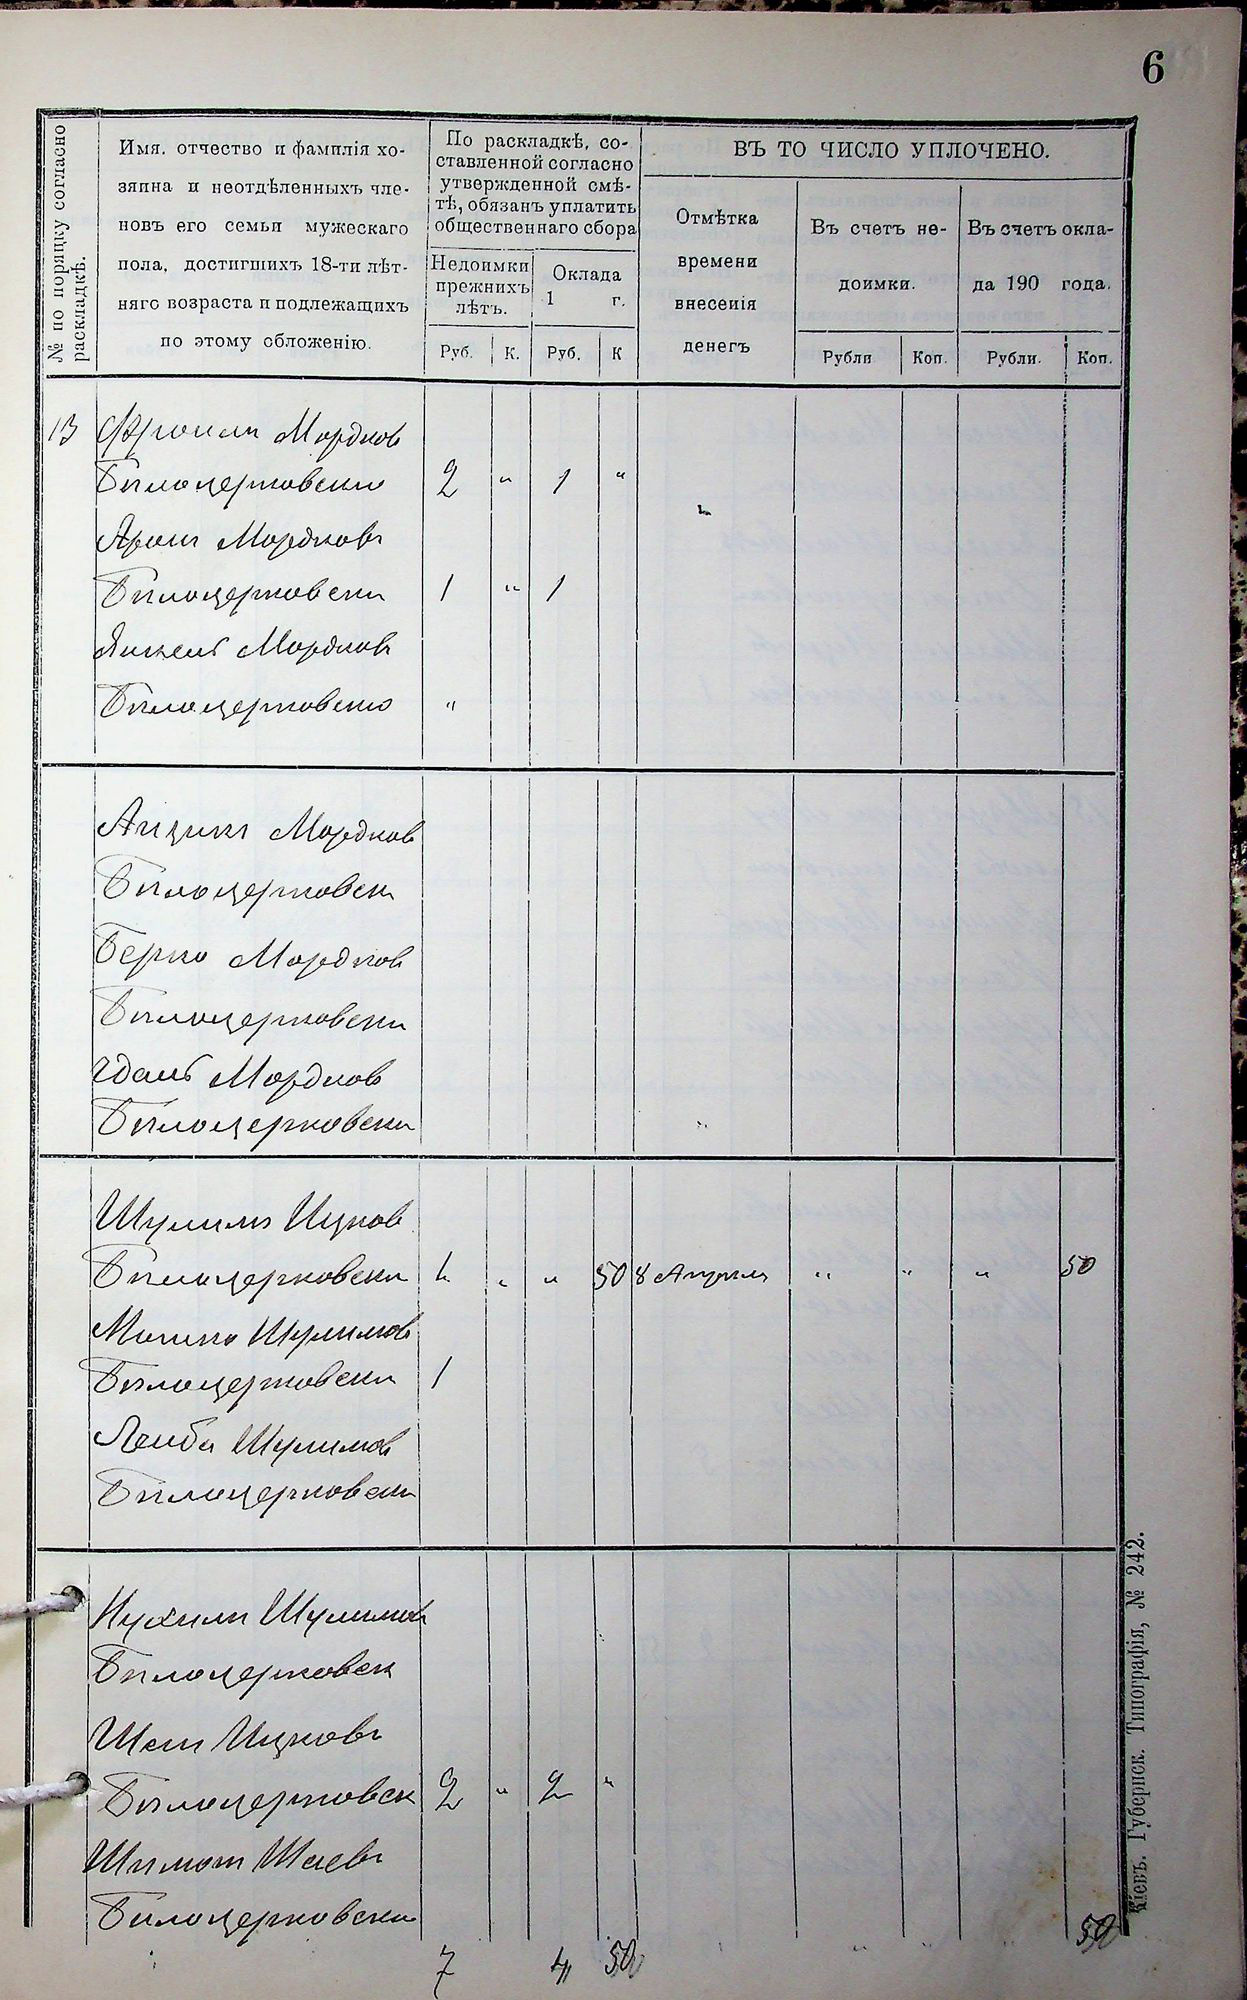 6
№ по порядку согласно раскладкѣ.
Имя, отчество и фамилія хо-
зяина и неотдѣленныхъ чле-
новъ его семьи мужескаго
пола, достигшихъ 18-ти лѣт-
няго возраста и подлежащихъ
по этому обложенію.
По раскладкѣ, со-
ставленной согласно
утвержденной смѣ-
тѣ, обязанъ уплатить
общественнаго сбора
Недоимки
прежнихъ
лѣтъ.
Оклада
1 г.
Руб. К. Руб. К
ВЪ ТО ЧИСЛО УПЛОЧЕНО.
Отмѣтка
времени
внесенія
денегъ
Въ счетъ не-
доимки.
Рубли Коп.
Въ счетъ окла-
да 190 года.
Рубли. Коп.
13 Мордков
Билоцерковски 2 " 1 "
Арон Мордковъ
Билоцерковски 1 " 1
Янкель Мордковъ
Билоцерковски "
Айзикъ Мордков
Билоцерковски
Берко Мордков
Билоцерковски
Мордков
Билоцерковски
Шулимъ Ицков
Билоцерковски " " 50 8 Апрѣля " " " 50
Мошко Шулимов
Билоцерковски 1
Лейба Шулимов
Билоцерковски
Нухим Шулимов
Билоцерковск
Ицковъ
Билоцерковск 2 " 2 "
Шаевъ
Билоцерковски
7 4 50 " " " 50
Кіевъ. Губернск. Типографія, № 242.